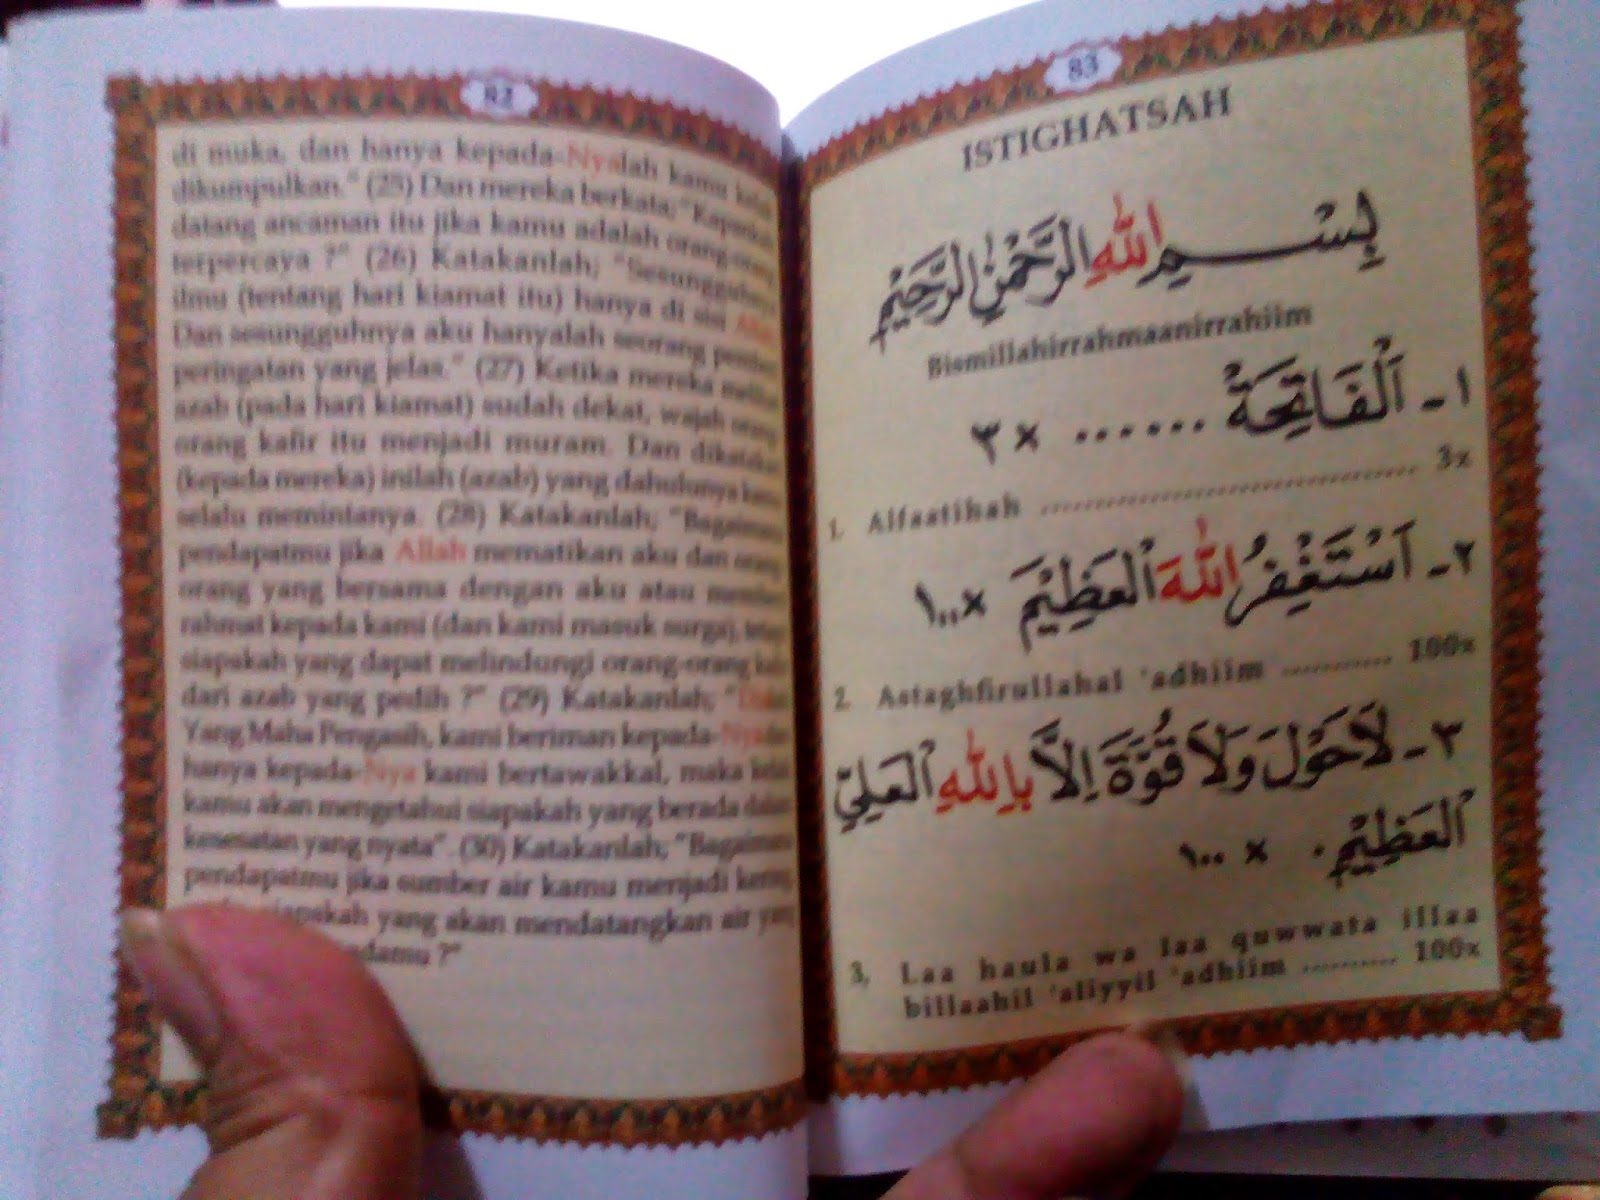 82
di muka, dan hanya kepada-Nyalah kamu kelak
dikumpulkan." (25) Dan mereka berkata; "Kapankah
datang ancaman itu jika kamu adalah orang-orang
terpercaya ?" (26) Katakanlah; "Sesungguhnya
ilmu (tentang hari kiamat itu) hanya di sisi Allah
Dan sesungguhnya aku hanyalah seorang pemberi
peringatan yang jelas." (27) Ketika mereka melihat
azab (pada hari kiamat) sudah dekat, wajah orang-
orang kafir itu menjadi muram. Dan dikatakan
(kepada mereka) inilah (azab) yang dahulunya kamu
selalu memintanya. (28) Katakanlah; "Bagaimana
pendapatmu jika Allah mematikan aku dan orang-
orang yang bersama dengan aku atau memberi
rahmat kepada kami (dan kami masuk surga), tetapi
siapakah yang dapat melindungi orang-orang kafir
dari azab yang pedih ?" (29) Katakanlah; "Dialah
Yang Maha Pengasih, kami beriman kepada-Nya dan
hanya kepada-Nya kami bertawakkal, maka kelak
kamu akan mengetahui siapakah yang berada dalam
kesesatan yang nyata". (30) Katakanlah; "Bagaimana
pendapatmu jika sumber air kamu menjadi kering,
siapakah yang akan mendatangkan air yang
?"
83
ISTIGHATSAH
بِسْمِ اللهِ الرَّحْمٰنِ الرَّحِيْمِ
Bismillahirrahmaanirrahiim
١- اَلْفَاتِحَةُ ...... × ٣
1. Alfaatihah ........................................ 3x
٢- اَسْتَغْفِرُ اللهَ الْعَظِيْمَ × ١٠٠
2. Astaghfirullahal 'adhiim ............ 100x
٣- لَاحَوْلَ وَلَا قُوَّةَ اِلاَّ بِاللهِ الْعَلِيِّ
الْعَظِيْمِ . × ١٠٠
3, Laa haula wa laa quwwata illaa
billaahil 'aliyyil 'adhiim .......... 100x